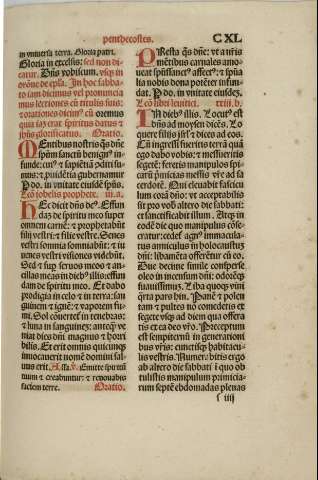 penthecostes. C XL
in vniuersa terra. Gloria patri.
Gloria in excelsis: sed non di-
catur. Dn̄s vobiscum. vsq; in
orōne de epl̄a. In hoc sabba-
to iam dicimus vel pronuncia
mus lectiones cū titulis suis: z
orationes dicim⁹ cū oremus
quia iaz erat spiritus datus z
ih̄us glorificatus. Oratio.
MEntibus nostris q̄s dn̄e
spūm sanctū benign⁹ in-
funde: cui⁹ z sapiētia cōditi su-
mus: z puidētia gubernamur
P do. in vnitate eiusdē sp̄us.
Lectio iohelis prophete. ii. a.
HEc dicit dn̄s de⁹. Effun
dā de spiritu meo super
omnem carnē: z prophetabūt
filij vestri: z filie vestre. Senes
vestri somnia somniabūt: z iu
uenes vestri visiones videbūt.
Sed z sup seruos meos z an-
cillas meas in dieb⁹ illis: effun
dam de spiritu meo. Et dabo
prodigia in celo z in terra: san
guinem z ignē: z vaporem fu-
mi. Sol cōuertet̄ in tenebras:
z luna in sanguinez: anteq̄ ve
niat dies dn̄i magnus z horri
bilis. Et erit omnis quicunq;
inuocauerit nomē domini sal-
uus erit. Alla. v̄. Emitte spiritū
tuum z creabuntur: z renouabis
faciem terre. Oratio.
PResta q̄s dn̄e: vt a nr̄is
mētibus carnales amo-
ueat spūssanct⁹ affect⁹: z spūa
lia nobis dona potēter infun-
dat. P do. in vnitate eiusdez.
Lectio libri leuitici. xxiij. b.
IN dieb⁹ illis. Locut⁹ est
dn̄s ad moysen dicēs. Lo
quere filijs isrl̄ z dices ad eos.
Cū ingressi fueritis terrā quā
ego dabo vobis: z messueritis
segetē: feretis manipulos spi-
carū primicias messis vr̄e ad sa
cerdotē. Qui eleuabit fascicu-
lum corā dn̄o: vt acceptabilis
sit pro vobis altero die sabbati:
et sanctificabit illum. Atq; in
eodē die quo manipulus cōse-
cratur: cedet̄ agn⁹ immacula-
tus anniculus in holocaustuz
dn̄i: libamēta offerētur cū eo.
Due decime simile consperse
oleo in incensum dn̄i: odorēq;
suauissimuz. Liba quoq; vini
q̄rta pars hin. Panē z polen
tam z pultes nō comedetis ex
segete vsq; ad diem qua offera
tis ex ea deo vr̄o. Preceptum
est sempiternū in generationi
bus vr̄is: cunctisq; habitacu-
lis vestris. Numerabitis ergo
ab altero die sabbati in quo ob
tulistis manipulum primicia-
rum septē ebdomadas plenas
s iiij